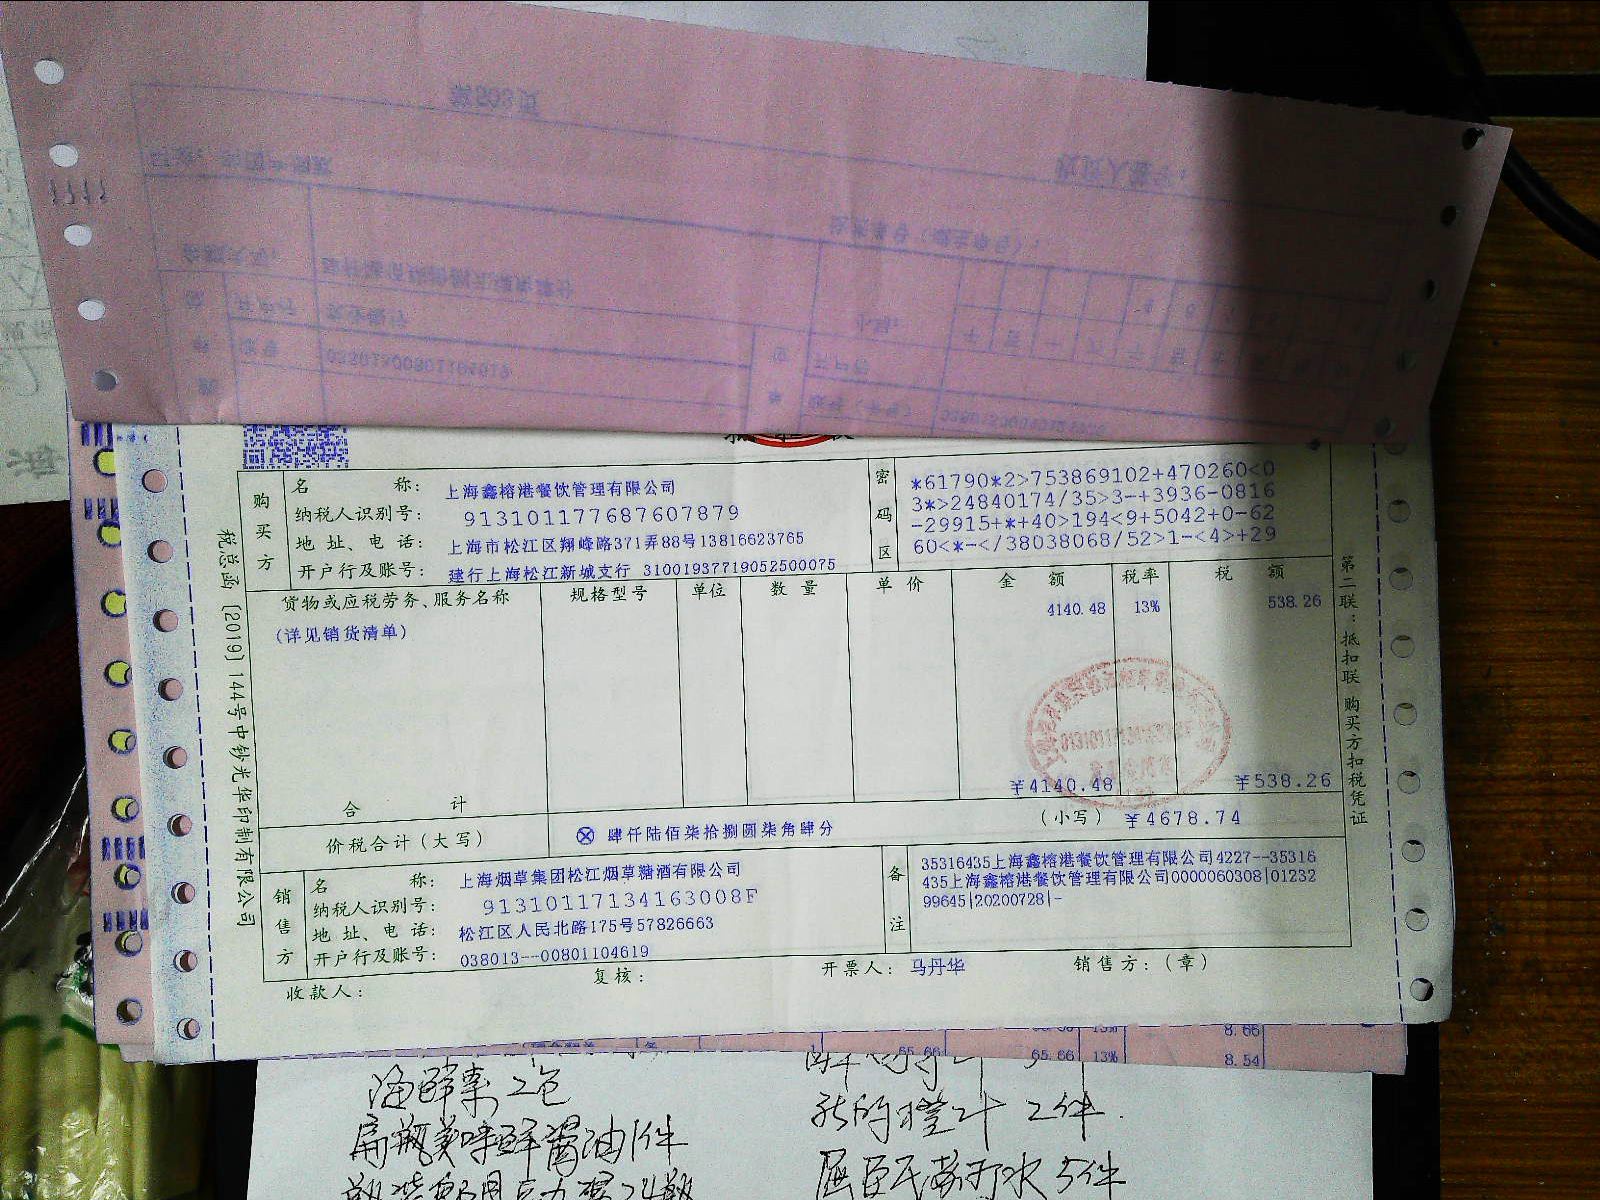 购买方
名 称： 上海鑫榕港餐饮管理有限公司
纳税人识别号： 913101177687607879
地 址、电 话： 上海市松江区翔峰路371弄88号13816623765
开户行及账号： 建行上海松江新城支行 31001937719052500075
密码区
*61790*2>753869102+470260<0
3*>24840174/35>3-+3936-0816
-29915+*+40>194<9+5042+0-62
60<*-</38038068/52>1-<4>+29
货物或应税劳务、服务名称 规格型号 单位 数 量 单 价 金 额 税率 税 额
(详见销货清单) 4140.48 13% 538.26
合 计 ¥4140.48 ¥538.26
价税合计（大写） ⊗ 肆仟陆佰柒拾捌圆柒角肆分 （小写） ¥4678.74
销售方
名 称： 上海烟草集团松江烟草糖酒有限公司
纳税人识别号： 91310117134163008F
地 址、电 话： 松江区人民北路175号57826663
开户行及账号： 038013--00801104619
备注
35316435上海鑫榕港餐饮管理有限公司4227--35316
435上海鑫榕港餐饮管理有限公司0000060308|01232
99645|20200728|-
收款人： 复核： 开票人： 马丹华 销售方：（章）
税总函〔2019〕144号中钞光华印制有限公司
第二联：抵扣联 购买方扣税凭证
13% 8.66
65.66 65.66 13% 8.54
海鲜素2包
扁瓶美味鲜酱油1件
2件
5件